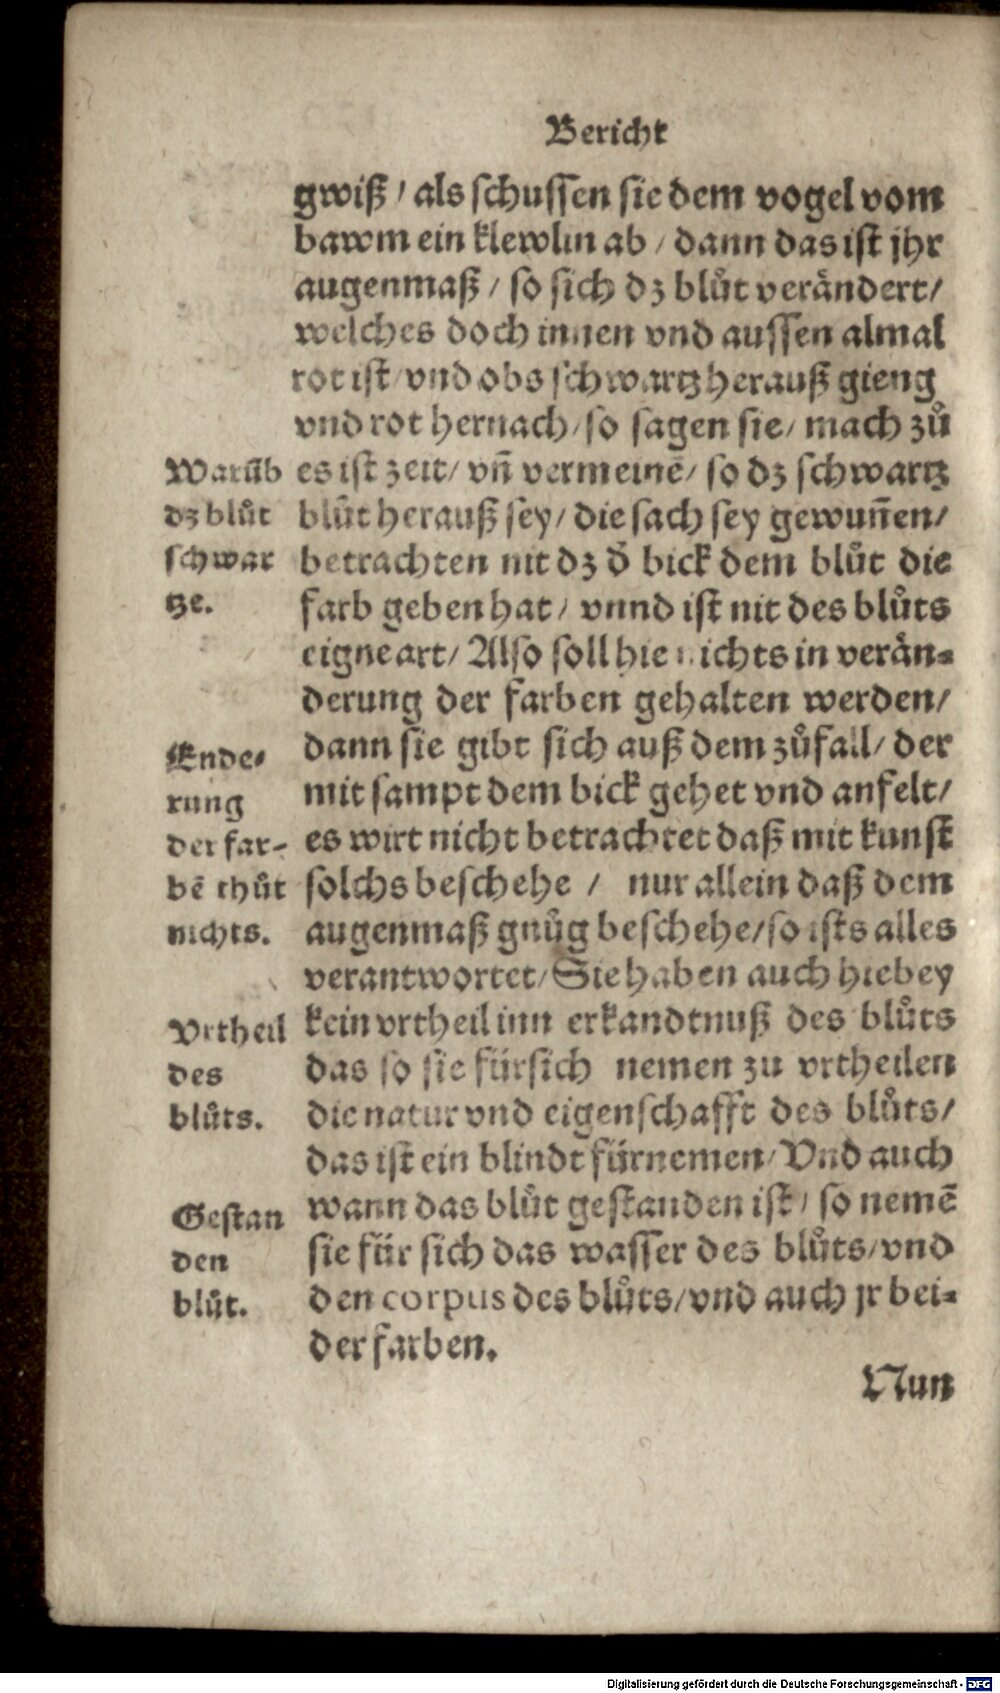 Bericht
gwiß / als schussen sie dem vogel vom
bawm ein klewlin ab / dann das ist jhr
augenmaß / so sich dz blůt verändert /
welches doch innen vnd aussen almal
rot ist / vnd obs schwartz herauß gieng
vnd rot hernach / so sagen sie / mach zů
es ist zeit / vn̄ vermeinē / so dz schwartz
blůt herauß sey / die sach sey gewun̄en /
betrachten nit dz d̄ bick dem blůt die
farb geben hat / vnnd ist nit des blůts
eigne art / Also soll hie nichts in verän⸗
derung der farben gehalten werden /
dann sie gibt sich auß dem zůfall / der
mit sampt dem bick gehet vnd anfelt /
es wirt nicht betrachtet daß mit kunst
solchs beschehe / nur allein daß dem
augenmaß gnůg beschehe / so ists alles
verantwortet / Sie haben auch hiebey
kein vrtheil inn erkandtnuß des blůts
das so sie fürsich nemen zu vrtheilen
die natur vnd eigenschafft des blůts /
das ist ein blindt fürnemen / Vnd auch
wann das blůt gestanden ist / so nemē
sie für sich das wasser des blůts / vnd
den corpus des blůts / vnd auch jr bei⸗
der farben.
Nun
Warūb
dz blůt
schwar
tze.
Ende⸗
rung
der far-
bē thůt
nichts.
Vrtheil
des
blůts.
Gestan
den
blůt.
Digitalisierung gefördert durch die Deutsche Forschungsgemeinschaft - DFG